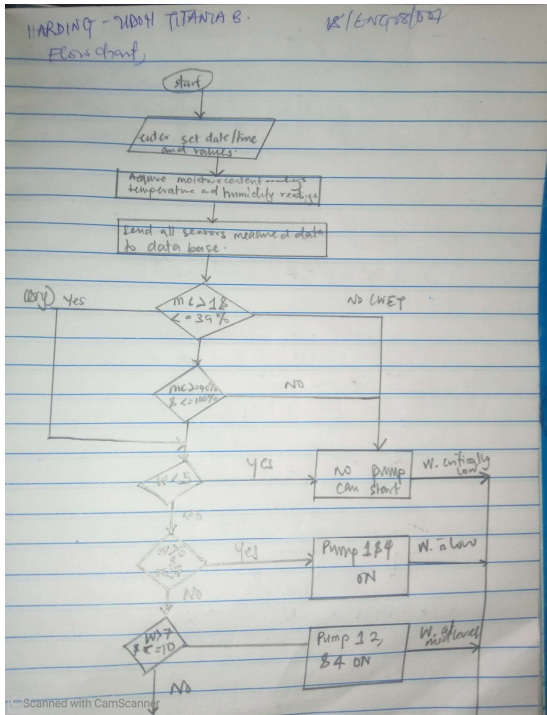 HARDING - UDOH TITANIA B. 18/ENG08/007
Flowchart
start
enter set date/time
and values.
Acquire moisture content readings
temperature and humidity readings
Send all sensors measured data
to data base.
(Dry) Yes
mc >18
<=39%
NO (WET)
mc>=40%
& <=100%
NO
W<5
yes
NO pump
can start
W. critically
low
NO
Yes
Pump 1&4
ON
W. is low
NO
W>7
& <=10
Pump 1 2,
& 4 ON
W. at
mid level
NO
Scanned with CamScanner